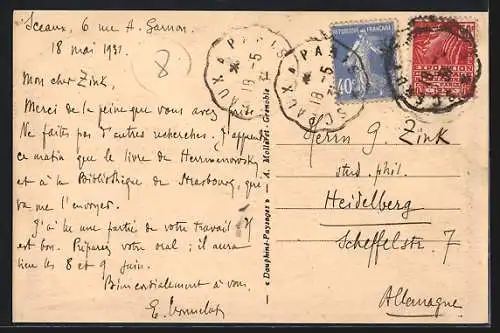 Sceaux, 6 rue A.
18 mai 1931.
8
Mon cher Zink,
Merci de la peine que vous avez prise
Ne faites pas d'autres recherches. J'apprends
ce matin que le livre de Herrmanowsky
est à la Bibliothèque de Strasbourg, qui
va me l'envoyer.
J'ai lu une partie de votre travail. Il
est bon. Préparez votre oral ; il aura
lieu les 8 et 9 juin.
Bien cordialement à vous,
E.
« Dauphiné-Paysages » — A. Mollaret - Grenoble
SCEAUX A PARIS
18-5
SCEAUX A PARIS
18-5
RÉPUBLIQUE FRANÇAISE
40c
EXPOSITION
Herrn G. Zink
stud. phil.
Heidelberg
Scheffelstr. 7
Allemagne